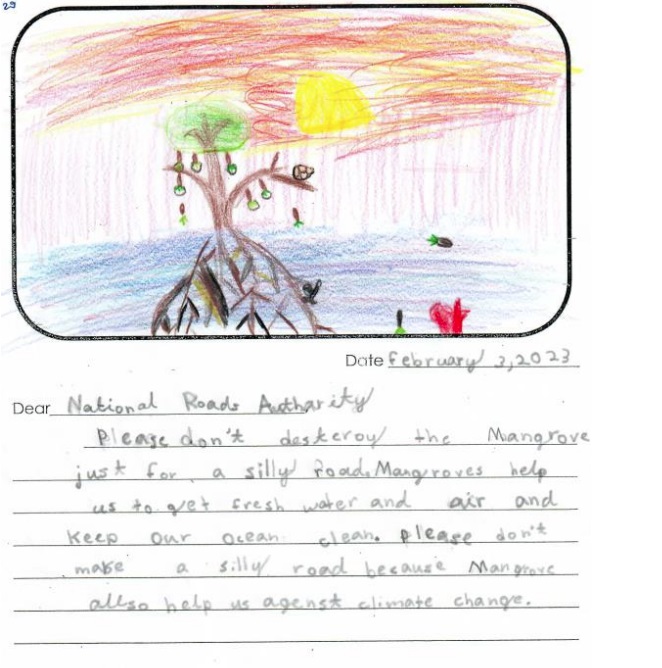 29
Date february 3,2023
Dear National Roads Autharity
Please don't desteroy the Mangrove
just for a silly Road. Mangroves help
us to get fresh water and air and
keep our ocean clean. Please don't
make a silly road because Mangrove
allso help us agenst climate change.